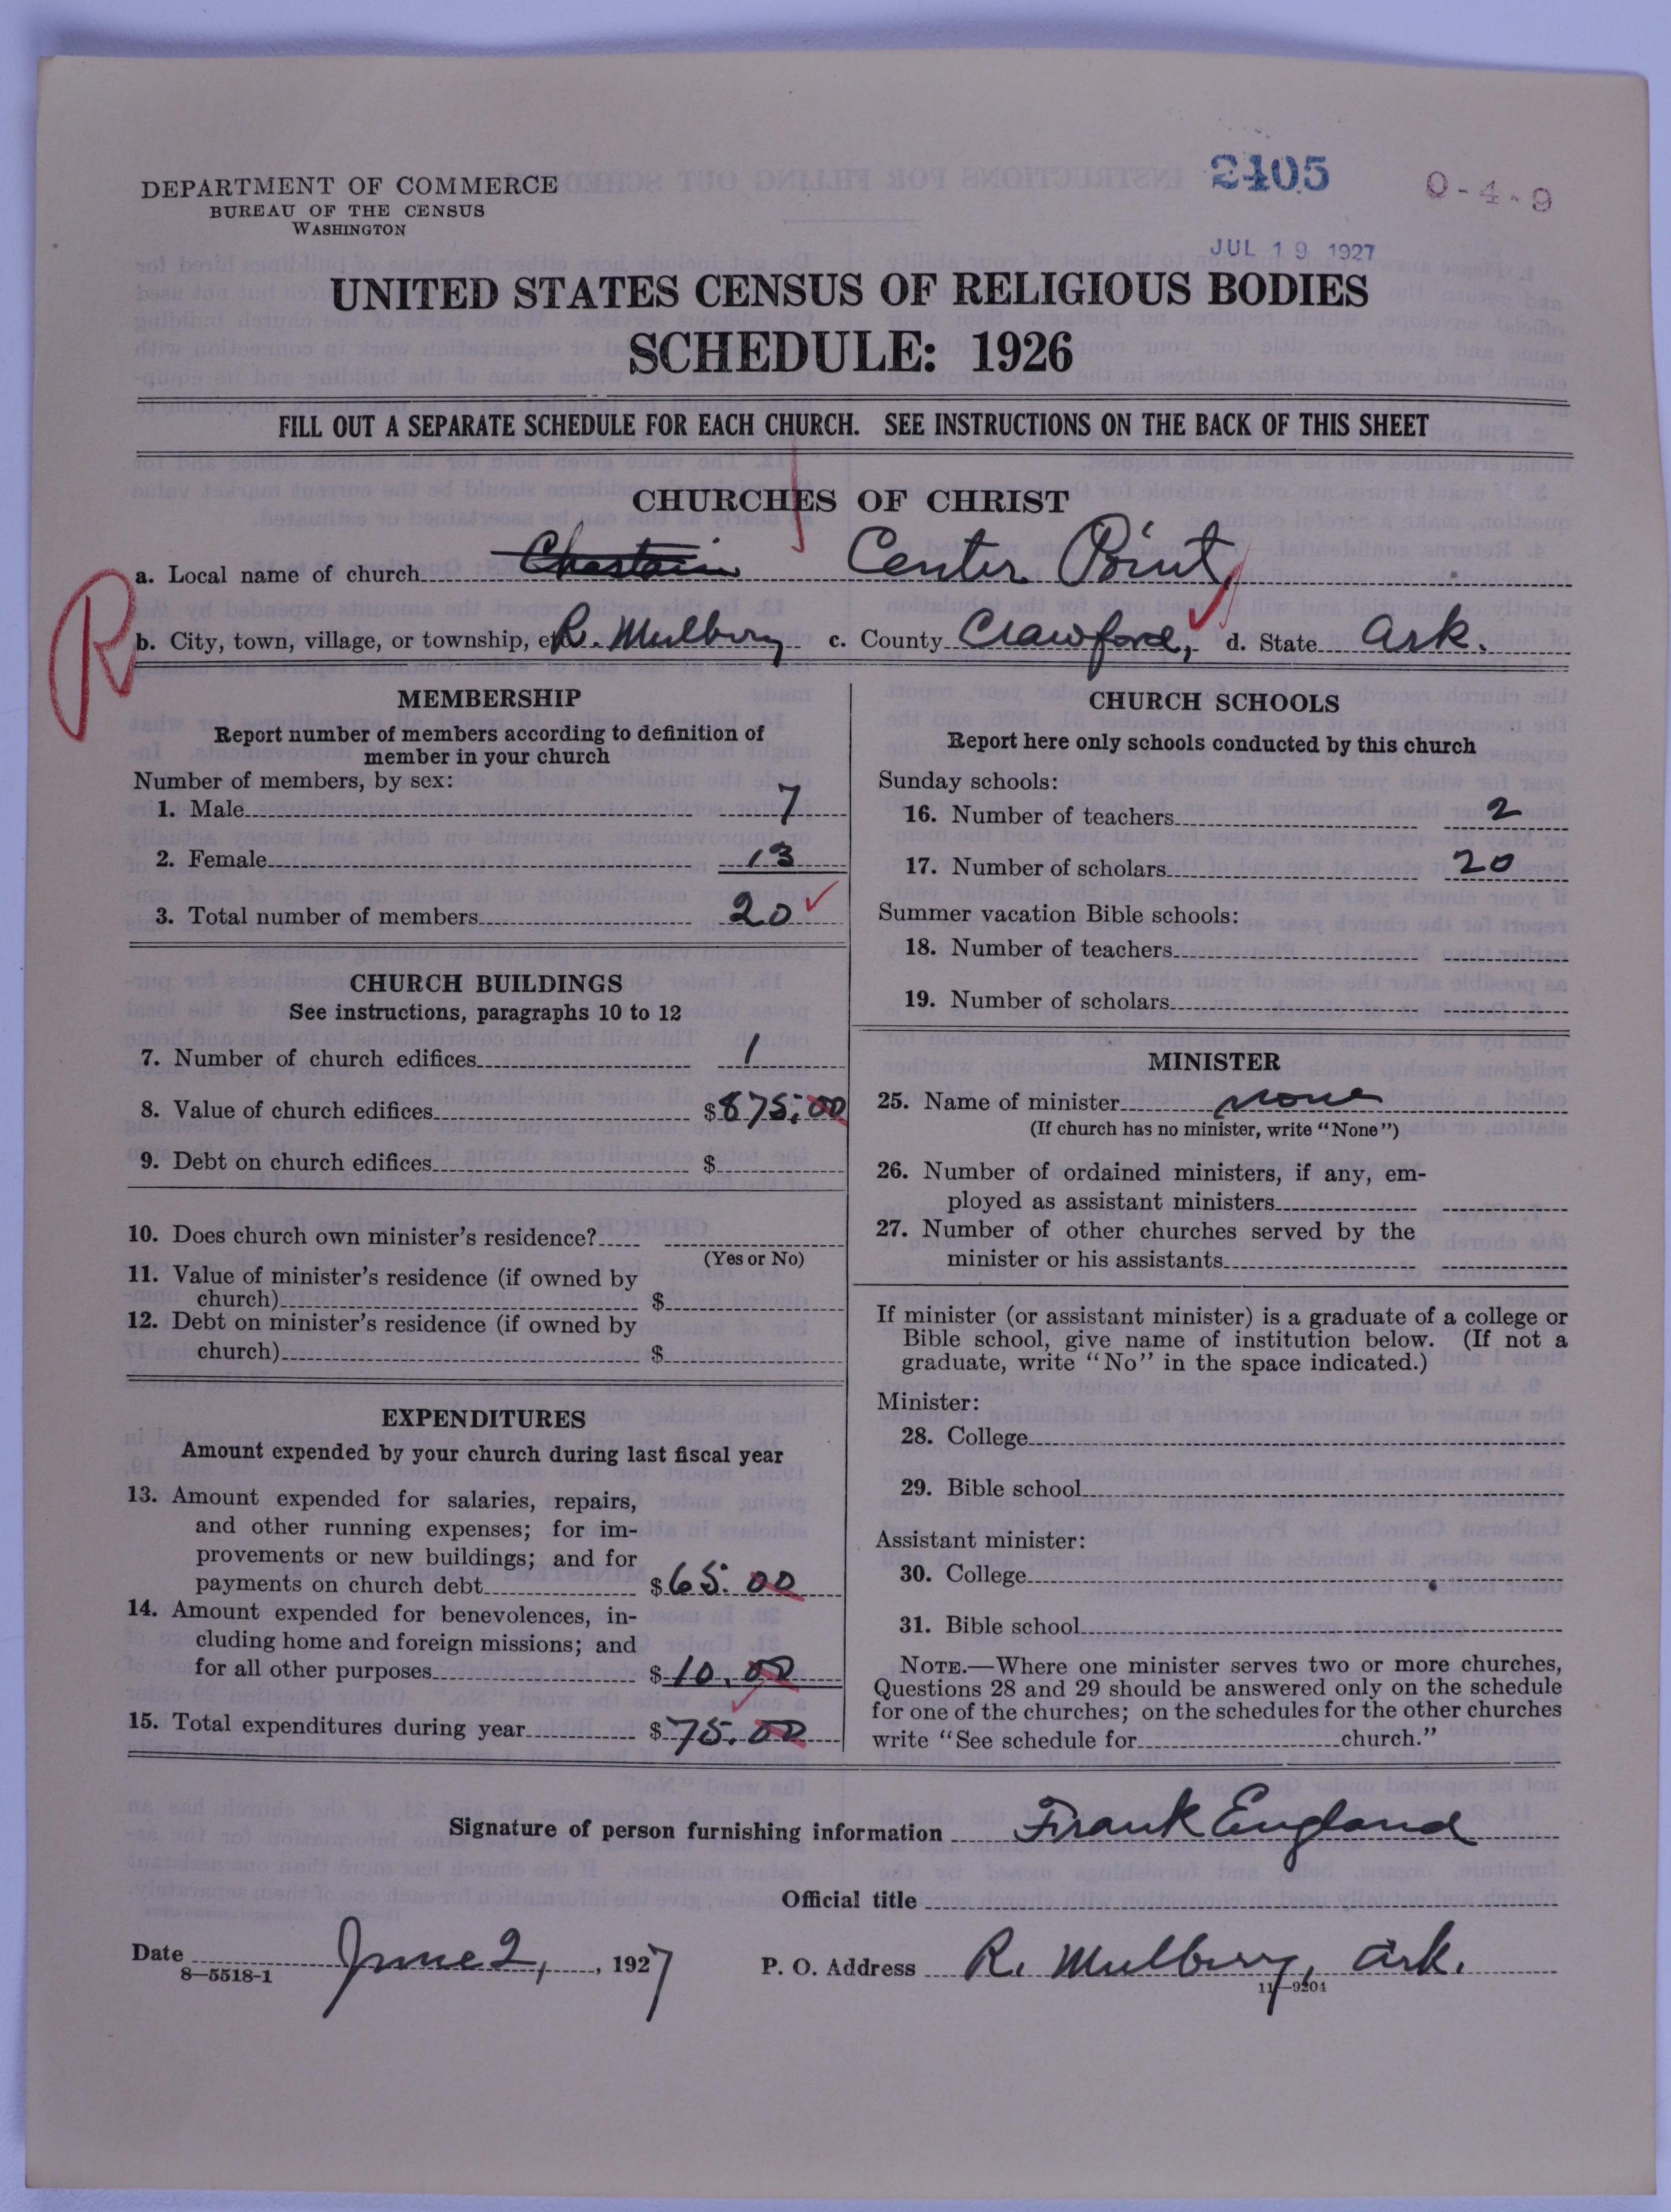 2405
0-4-9
DEPARTMENT OF COMMERCE
BUREAU OF THE CENSUS
WASHINGTON
JUL 19 1927
UNITED STATES CENSUS OF RELIGIOUS BODIES
SCHEDULE: 1926
FILL OUT A SEPARATE SCHEDULE FOR EACH CHURCH. SEE INSTRUCTIONS ON THE BACK OF THIS SHEET
CHURCHES OF CHRIST
a. Local name of church Chastain Center Point
R
b. City, town, village, or township, etc. R. Mulbury c. County Crawford, d. State Ark.
MEMBERSHIP
Report number of members according to definition of
member in your church
Number of members, by sex:
1. Male 7
2. Female 13
3. Total number of members 20
CHURCH BUILDINGS
See instructions, paragraphs 10 to 12
7. Number of church edifices 1
8. Value of church edifices $875.00
9. Debt on church edifices $
10. Does church own minister's residence?
(Yes or No)
11. Value of minister's residence (if owned by
church) $
12. Debt on minister's residence (if owned by
church) $
EXPENDITURES
Amount expended by your church during last fiscal year
13. Amount expended for salaries, repairs,
and other running expenses; for im-
provements or new buildings; and for
payments on church debt $65.00
14. Amount expended for benevolences, in-
cluding home and foreign missions; and
for all other purposes $10.00
15. Total expenditures during year $75.00
CHURCH SCHOOLS
Report here only schools conducted by this church
Sunday schools:
16. Number of teachers 2
17. Number of scholars 20
Summer vacation Bible schools:
18. Number of teachers
19. Number of scholars
MINISTER
25. Name of minister none
(If church has no minister, write "None")
26. Number of ordained ministers, if any, em-
ployed as assistant ministers
27. Number of other churches served by the
minister or his assistants
If minister (or assistant minister) is a graduate of a college or
Bible school, give name of institution below. (If not a
graduate, write "No" in the space indicated.)
Minister:
28. College
29. Bible school
Assistant minister:
30. College
31. Bible school
NOTE.—Where one minister serves two or more churches,
Questions 28 and 29 should be answered only on the schedule
for one of the churches; on the schedules for the other churches
write "See schedule for church."
Signature of person furnishing information Frank England
Official title
Date June 2, , 1927 P. O. Address R. Mulbury, Ark.
8—5518-1
11—9204